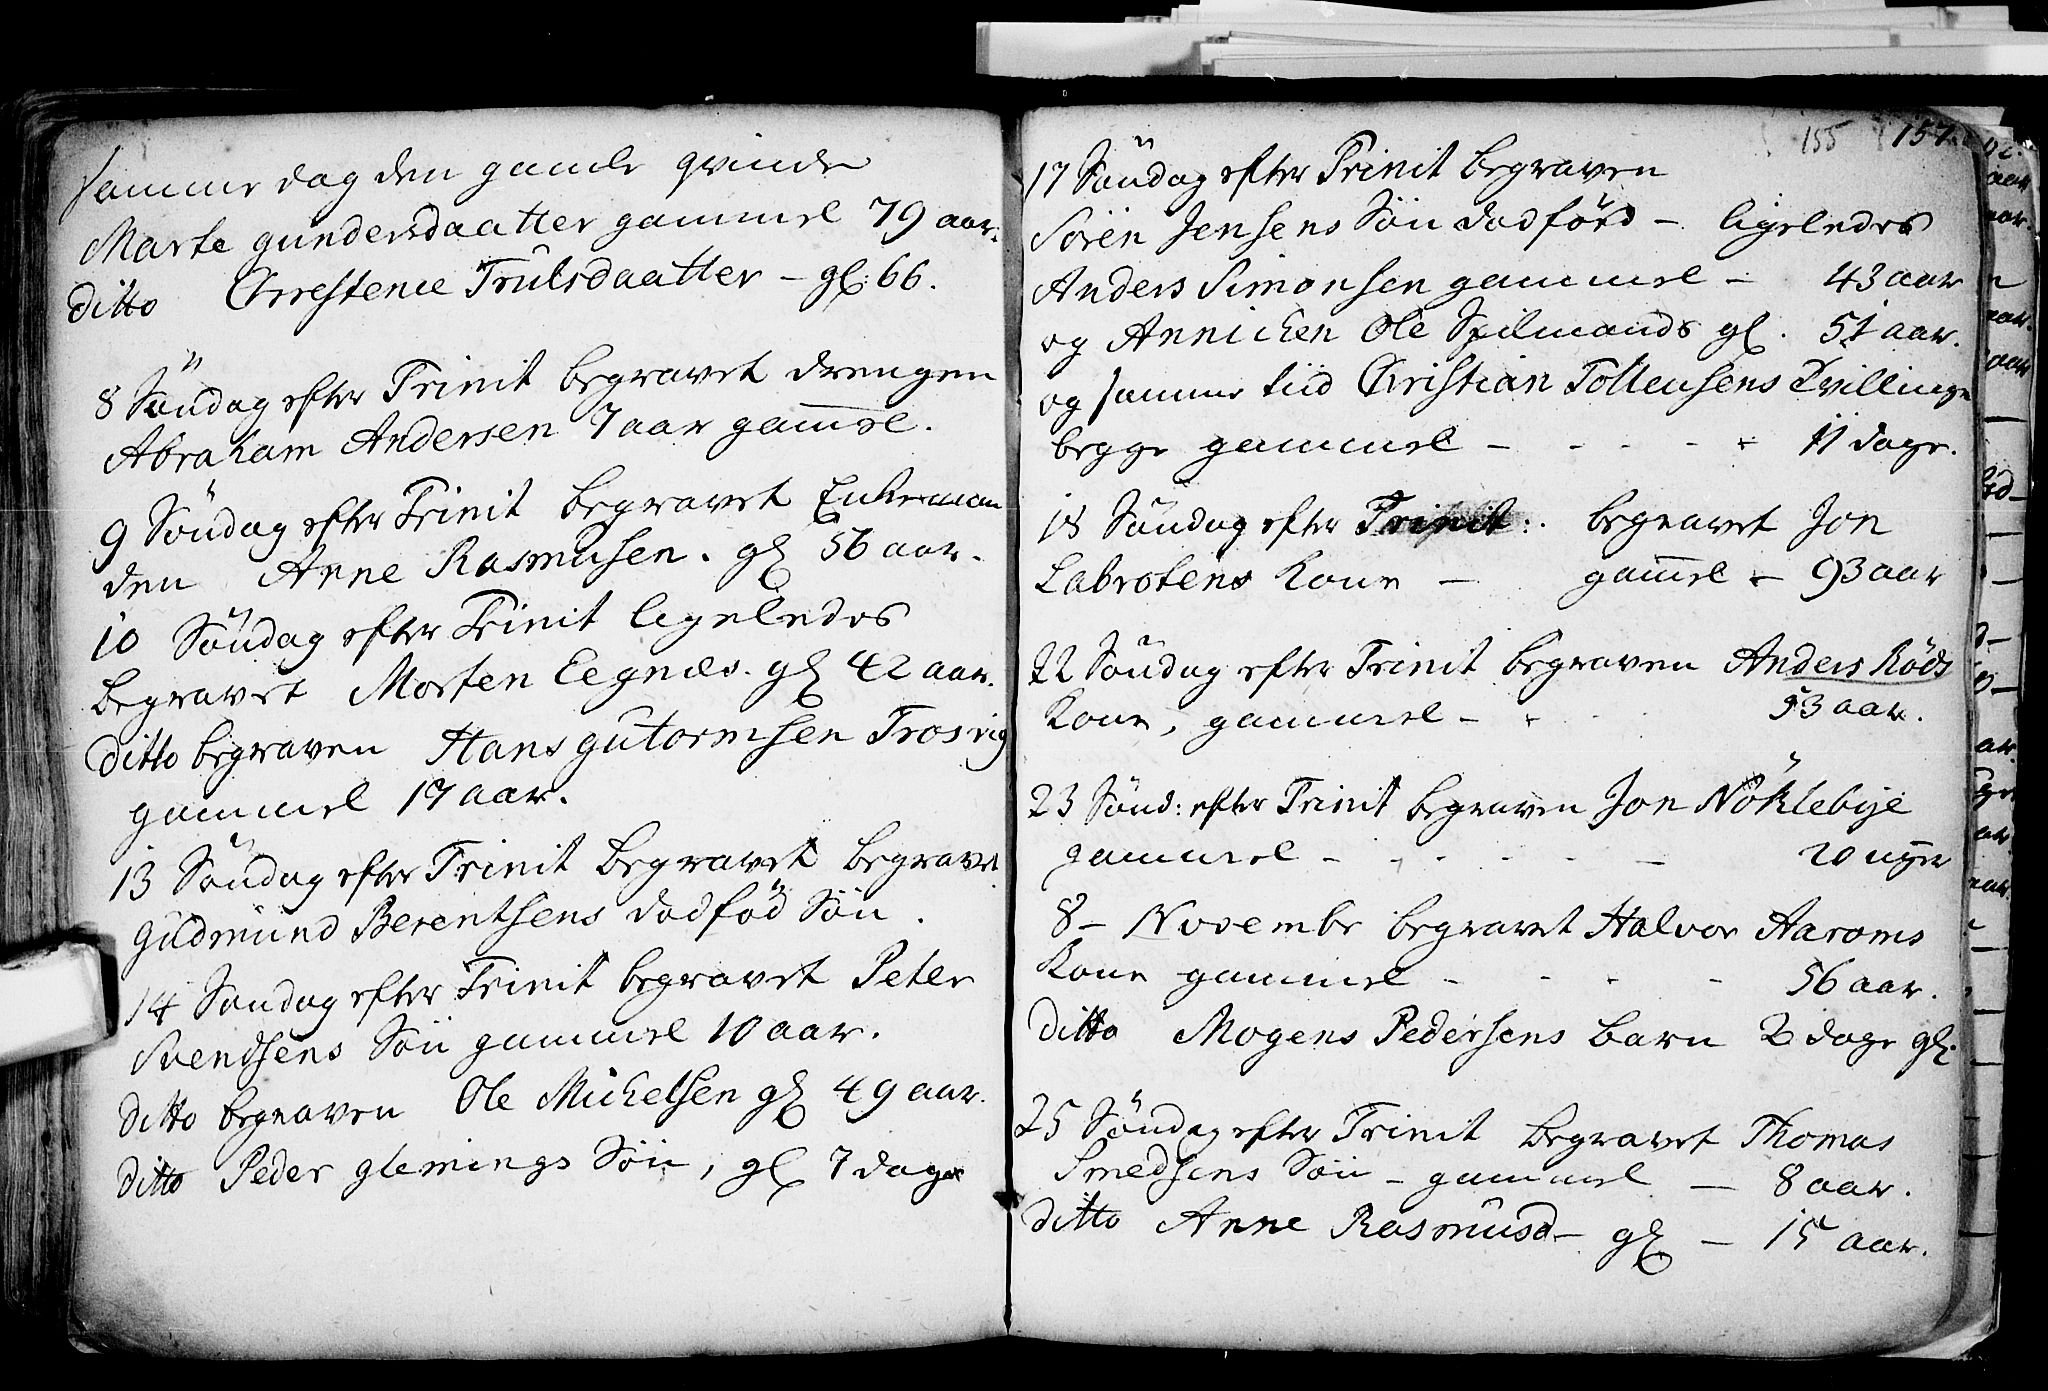 samme dag den gamle qvinde
Marte gundersdaatter gammel 79 aar.
ditto Chrestence Trulsdaatter – gl: 66.
8 Söndag efter Trinit begravet drengen
Abraham Andersen 7 aar gam̄el.
9 Söndag efter Trinit begravet Enkeman
den Arne Rasmusen. gl 56 aar.
10 Söndag efter Trinit ligeledes
begravet Morten Eegnæs. gl 42 aar.
ditto begraven Hans gutormsen Trosvig
gammel 17 aar.
13 Söndag efter Trinit begravet begravet
Gudmund Berentsens dodföd Sön.
14 Söndag efter Trinit begravet Peter
Svendsens Sön gammel 10 aar.
ditto begraven Ole Michelsen gl 49 aar.
ditto Peder glemings Sön, gl 7 dage
155 157
17 Söndag efter Trinit begraven
Sören Jensens Sön dodförd – ligeledes
Anders Simonsen gammel – 43 aar
og Annichen Ole Spilmands gl. 51 aar.
og samme tiid Christian Tollensens Tvillinge
begge gammel – 11 dage.
18 Söndag efter Trinit: begravet Jon
Labrotens Kone – gam̄el – 93 aar
22 Söndag efter Trinit begraven Anders Röds
Kone, gammel – 53 aar.
23 Sönd: efter Trinit begraven Jon Nöklebye
gammel – 20 uger
8 – Novembr begravet Halvor Aaroms
Kone gammel – 56 aar.
ditto Mogens Pedersens barn 2 dage gl.
25 Söndag efter Trinit begravet Thomas
Smedsens Sön – gammel – 8 aar.
ditto Anne Rasmusd – gl – 15 aar.